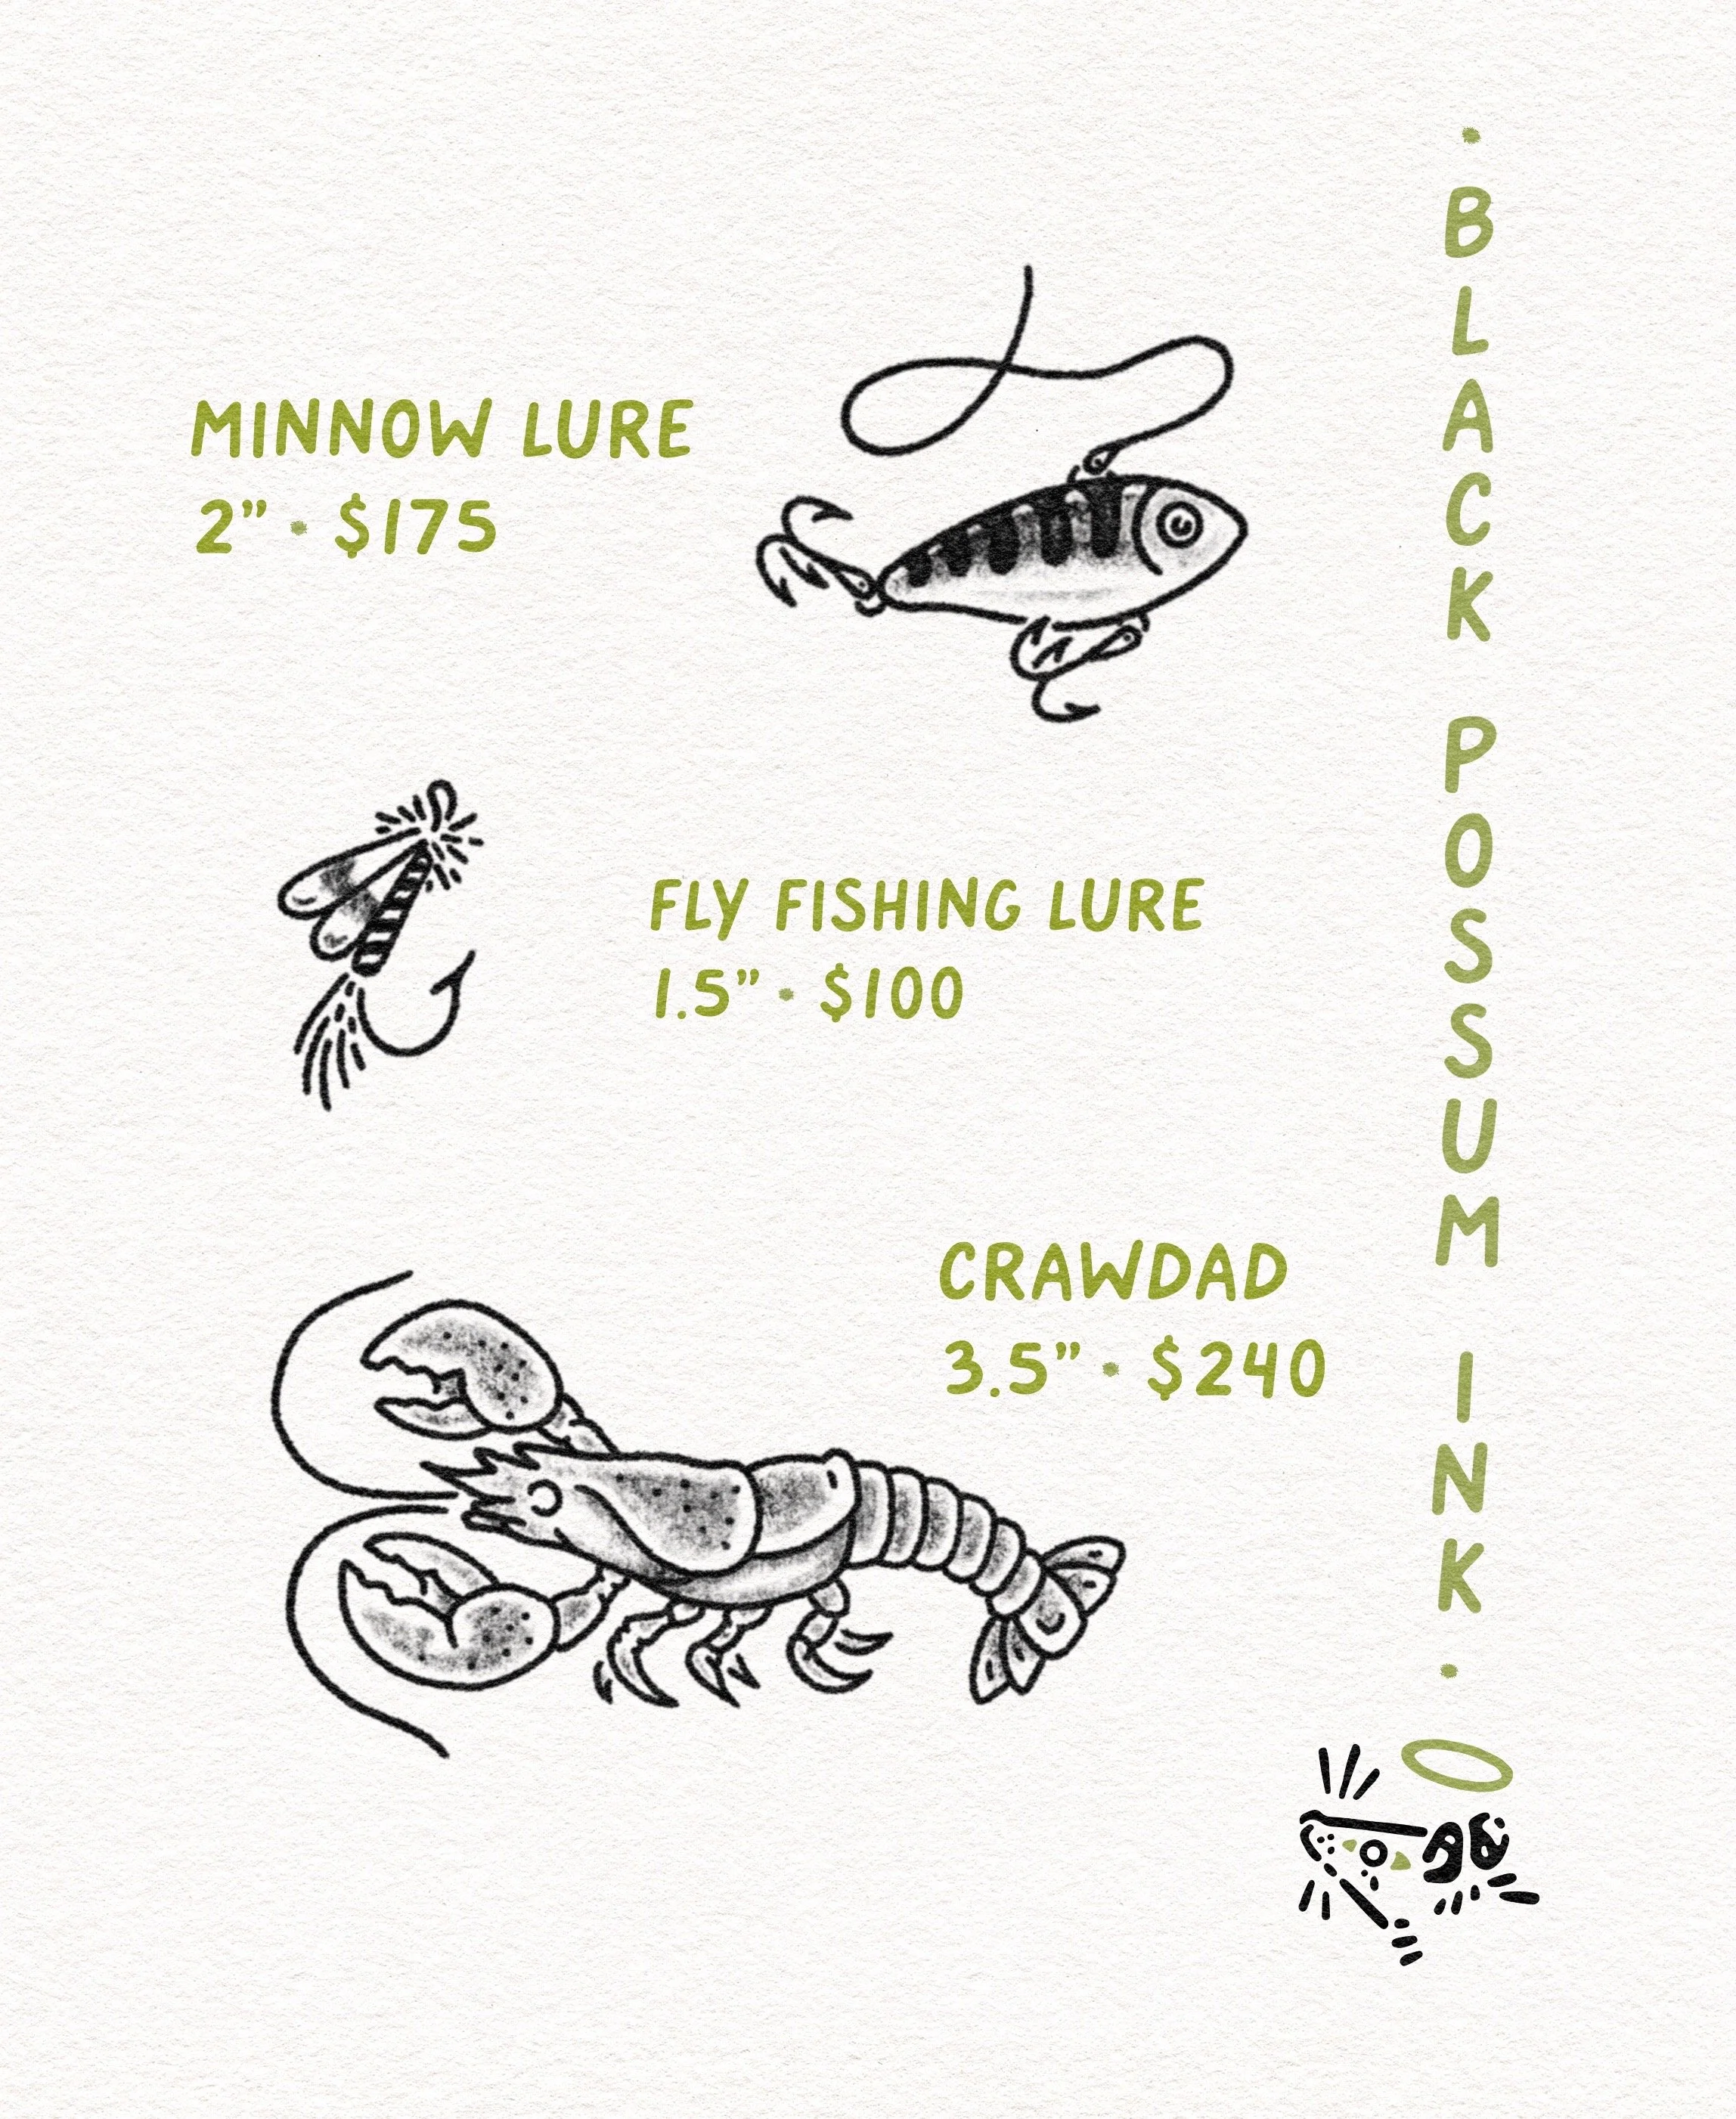 MINNOW LURE
2” • $175
FLY FISHING LURE
1.5” • $100
CRAWDAD
3.5” • $240
• BLACK POSSUM INK •